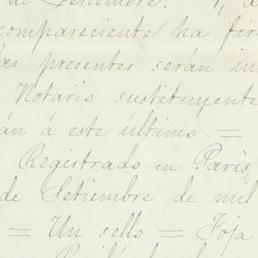 de Setiembre.
compareciente ha fir
las presentes serán in
Notario sustituyente
án á este último. =
Registrado en Paris,
de Setiembre de mil
= Un sello = Foja